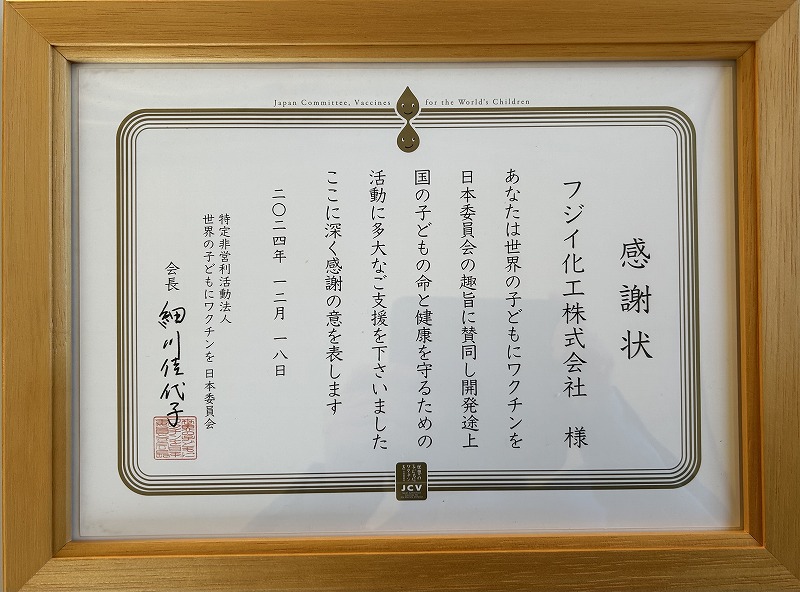 Japan Committee, Vaccines for the World's Children
感謝状
フジイ化工株式会社 様
あなたは世界の子どもにワクチンを
日本委員会の趣旨に賛同し開発途上
国の子どもの命と健康を守るための
活動に多大なご支援を下さいました
ここに深く感謝の意を表します
二〇二四年 一二月 一八日
特定非営利活動法人
世界の子どもにワクチンを 日本委員会
会長 細川佳代子
JCV